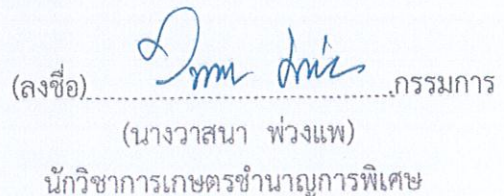 (ลงชื่อ)..............................กรรมการ
(นางวาสนา พ่วงแพ)
นักวิชาการเกษตรชำนาญการพิเศษ